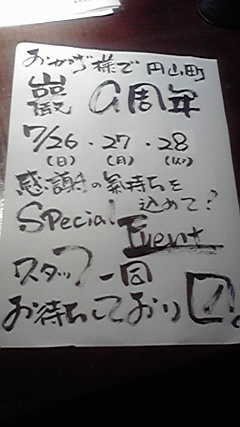 おかげ様で 円山町
巖 9周年
7/26・27・28
(日) (月) (火)
感謝の氣持ちを
Special 込めて?
Event
スタッフ一同
おお待ちしており〼!